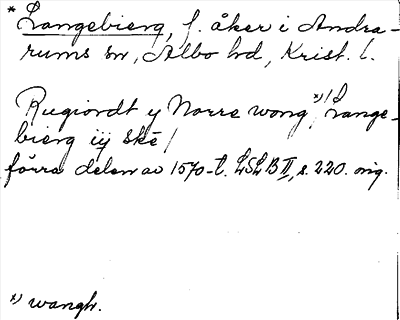 * Langebierg, f. åker i Andra-
rums sn, Albo hd, Krist. l.
Rugiordt y Norre wong, x) / Lange-
bierg iij ske /
förra delen av 1570-t. LSLB II, s. 220. orig.
x) wangh.